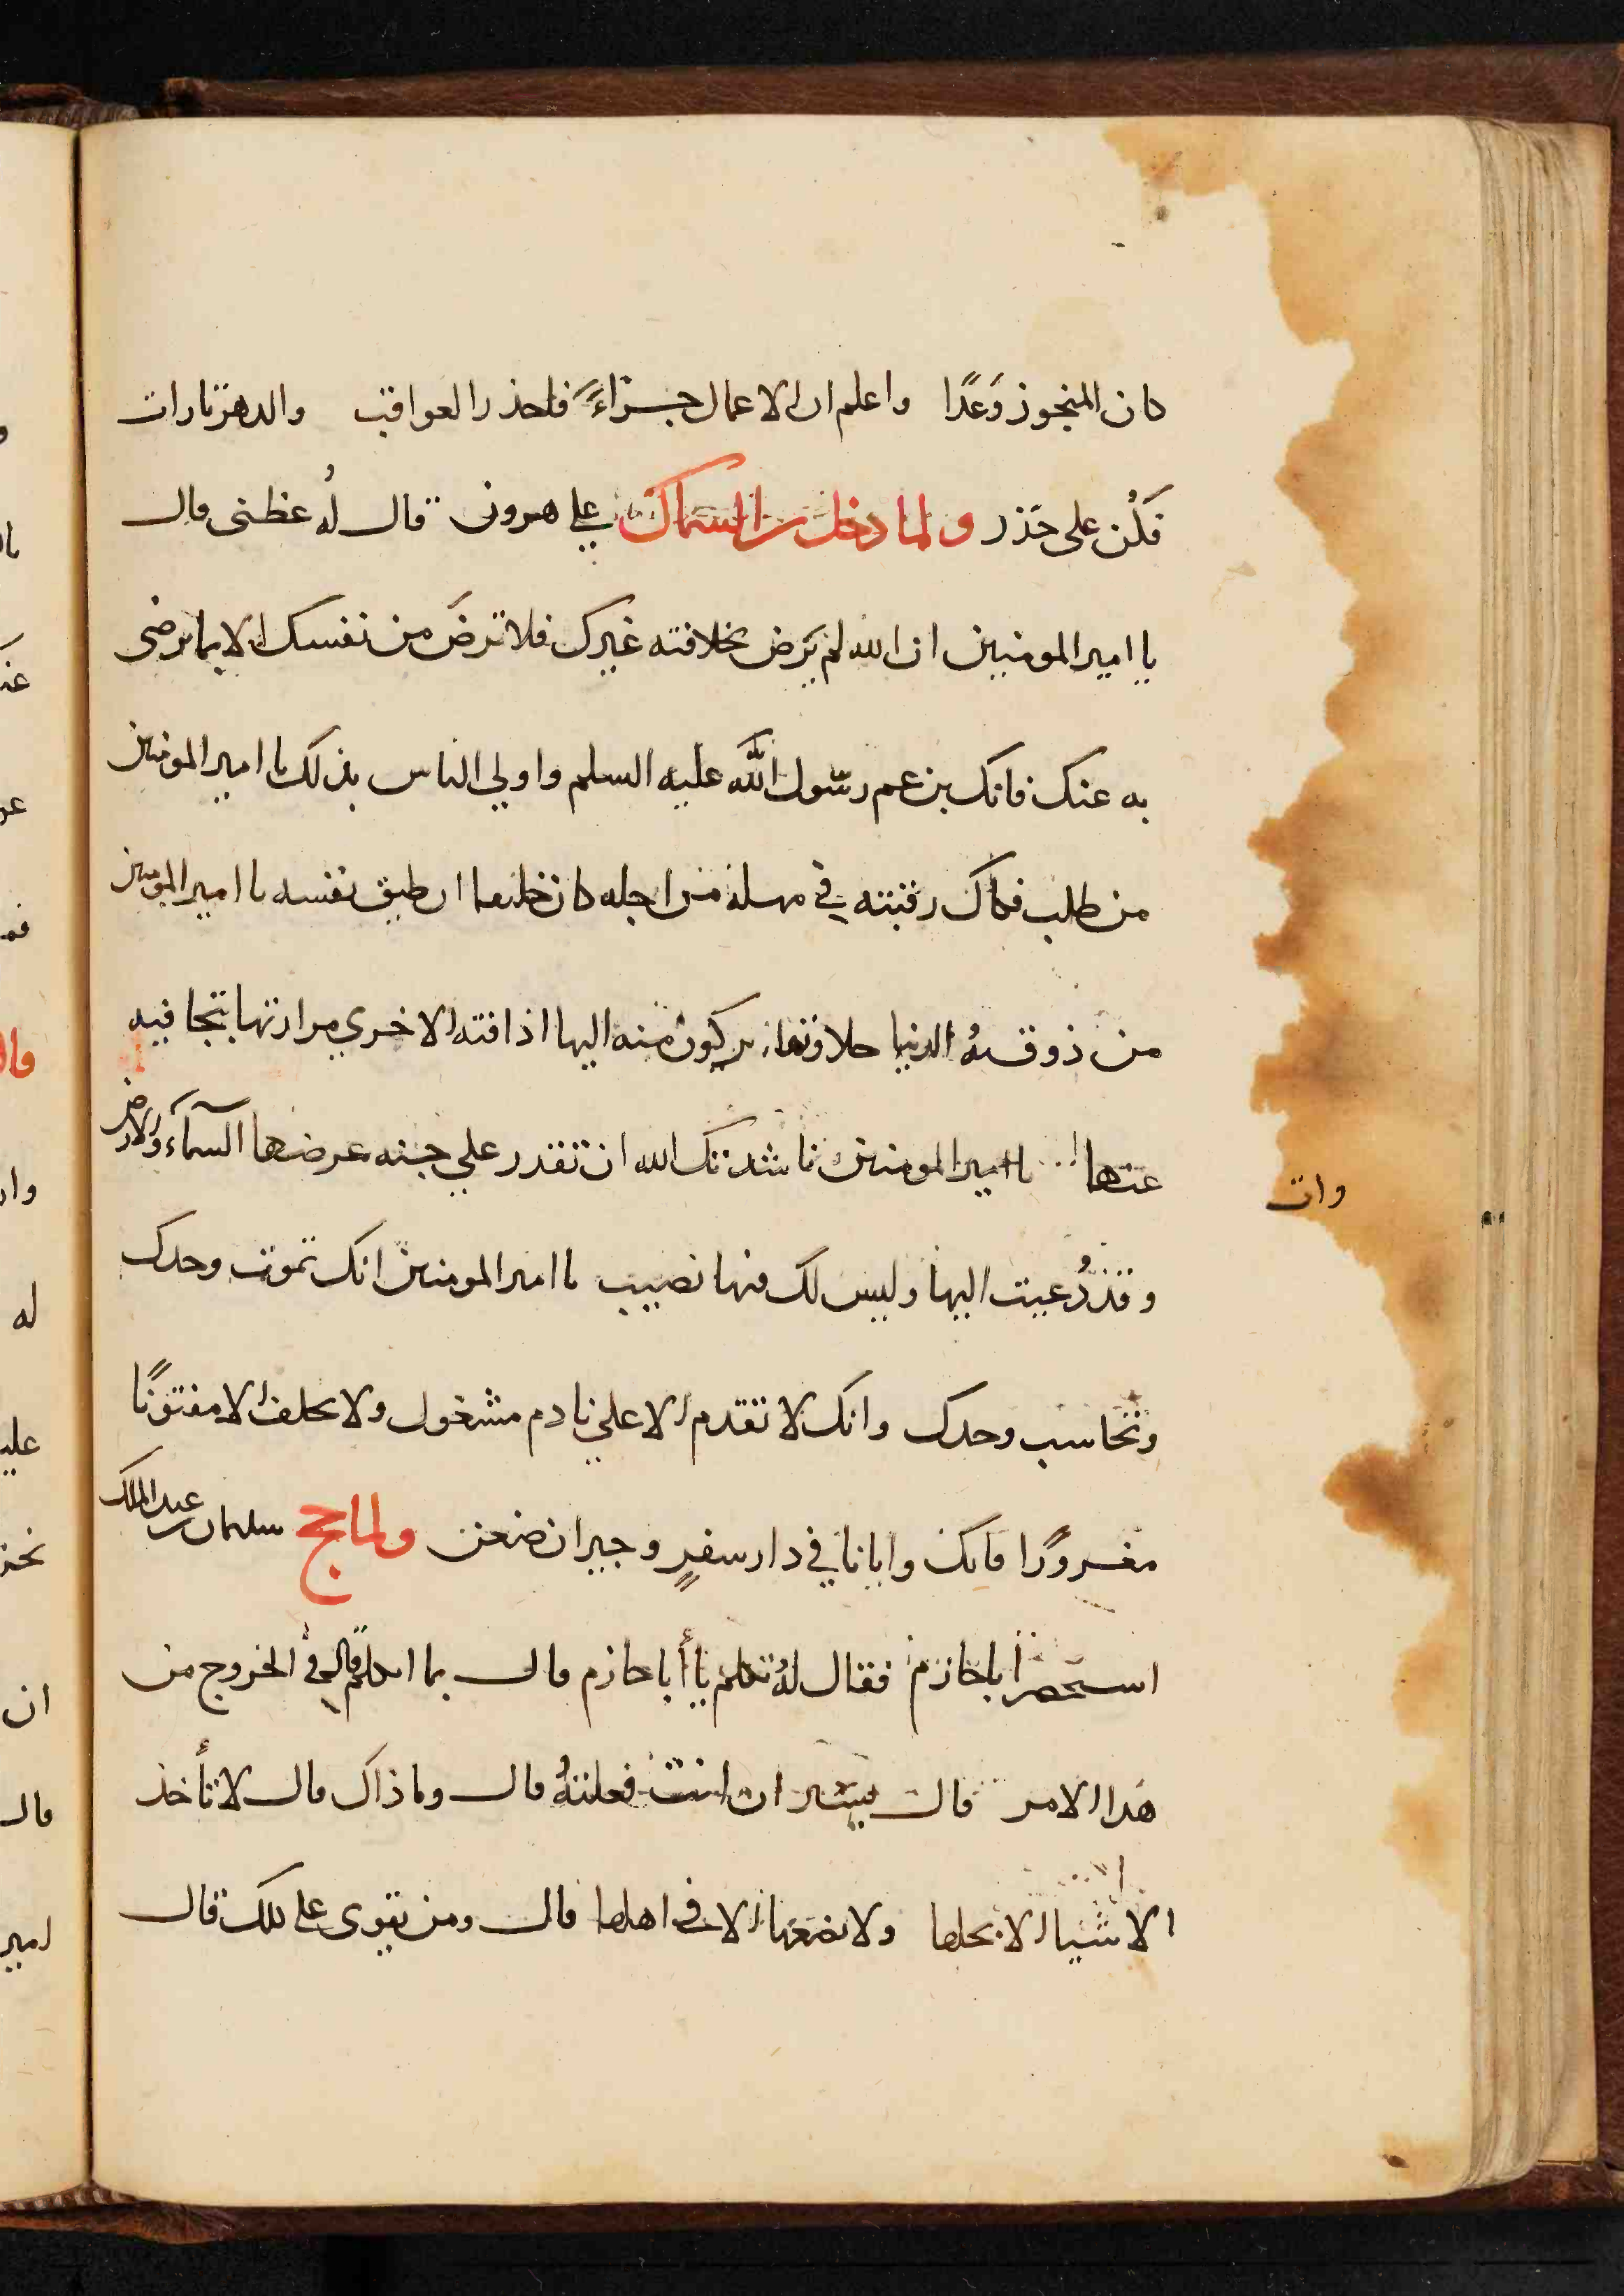 كان المنجوز وَعدًا واعلم ان الاعمال جزاءً فاحذر العواقب والدهر تارات
فكُن على حَذر ولما دخل بن السماك علي هرون قال لهُ عظنى قال
يا امير المومنين ان الله لم يَرض بخلافته غيرك فلا ترضَ من نفسك الا بما يرضى
به عنك فانك بن عم رسول الله عليه السلم واولي الناس بذلك يا امير المومنين
من طلب فكاك رقبته في مهلة من اجله كان خليعا ان طيق نفسه يا امير المومنين
من ذوقته الدنيا حلاوتها بركون منه اليها اذاقته الاخري مرارتها بتجافيه
عنها يا امير المومنين ناشدتك الله ان تقدر علي جنه عرضها السمآء والارض
وات
وقد دُعيت اليها وليس لك فيها نصيب يا امير المومنين انك تموت وحدك
وتحاسب وحدك وانك لا تقدم الا علي نادم مشغول ولا تخلف الا مفتونًا
مغرورًا فانك وايانا في دار سفرٍ وجيران ضعن ولما حج سليمان بن عبد الملك
استحضر ابا حازم فقال لهُ تكلم يا أبا حازم قال بما اتكلم قال في الخروج من
هذا الامر قال يسير ان انت فعلتهُ قال وما ذاك قال لا تأخذ
الاشيا الا بحلها ولا تضعها الا في اهلها قال ومن يقوى على ذلك قال